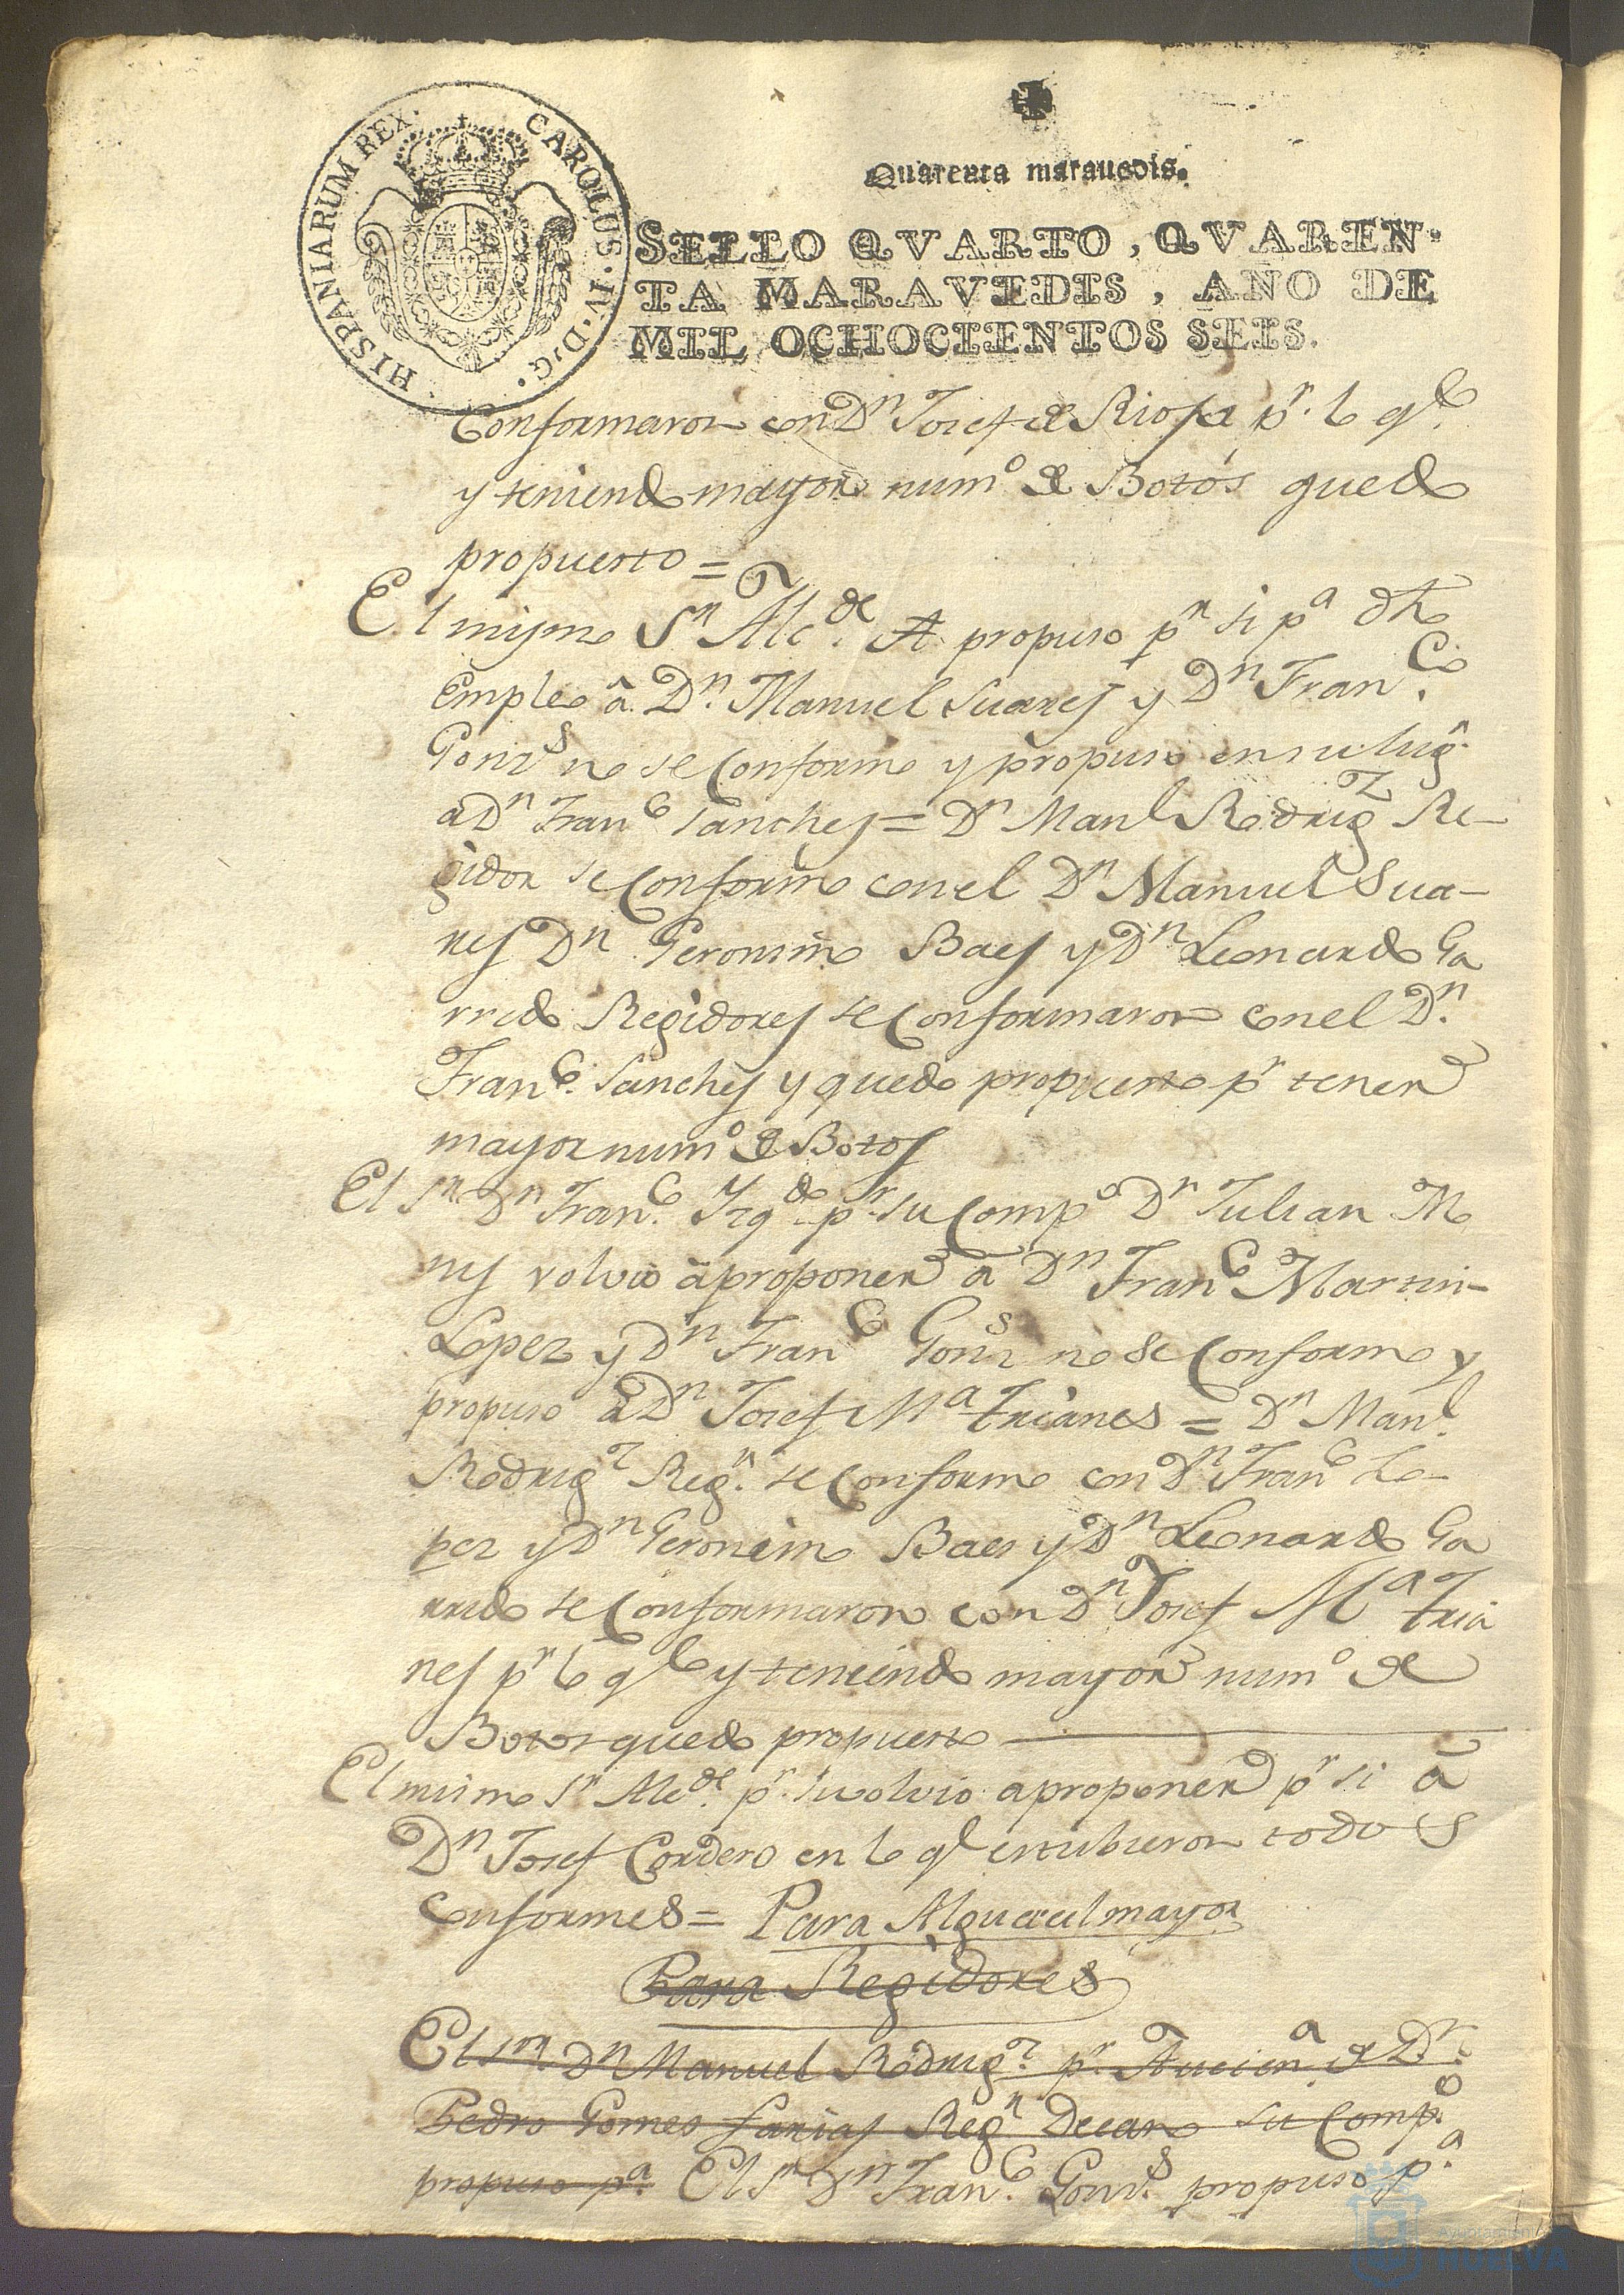 HISPANIARUM REX. CAROLUS·IV·D·G·
Quarenta marauedis.
SELLO QVARTO, QVAREN-
TA MARAVEDIS, AÑO DE
MIL OCHOCIENTOS SEIS.
Conformaron con Dn Josef de Rioja pr. lo qe
y teniendo mayor numo de Botos quedo
propuesto =
El mismo Sr Alcde propuso pr si pa dho
Empleo â Dn. Manuel Suares y Dn Franco
Gonzs no se Conformo y propuso en su lugr
a Dn Franco Sanches = Dn Manl Rodrigz Re-
gidor se Conformo con el Dn Manuel Sua-
res Dn Geronimo Baes y Dn Leonardo Ga
rrido Regidores se Conformaron con el Dn.
Franco. Sanches y quedo propuesto pr tener
mayor numo de Botos
El Sr Dn Franco. Izqdo pr su Compo Dn Julian M
ns volvio a proponer a Dn Franco Martin
Lopez y Dn Franco Gonzs no se Conformo y
propuso a Dn Josef Ma Trianes = Dn Manl
Rodrigz Regr. se Conformo con Dn Franco Lo-
pez y Dn Geronimo Baes y Dn Leonardo Ga
rrido se Conformaron con Dn Josef Ma Tria
nes pr lo qe y teniendo mayor numo de
Botos quedo propuesto
El mismo Sr Alcde pr. si volvio a proponer pr si â
Dn Josef Cordero en lo ql estubieron todos
Conformes = Para Alguacil mayor
Para Regidores
El Sr. Dn Manuel Rodrigz. pr. Auciena de Dn.
Pedro Gomes Farias Regr Decano su Compo
propuso pa. El Sr Dn Franco. Gonzs. propuso pa
Ayuntamiento
HUELVA